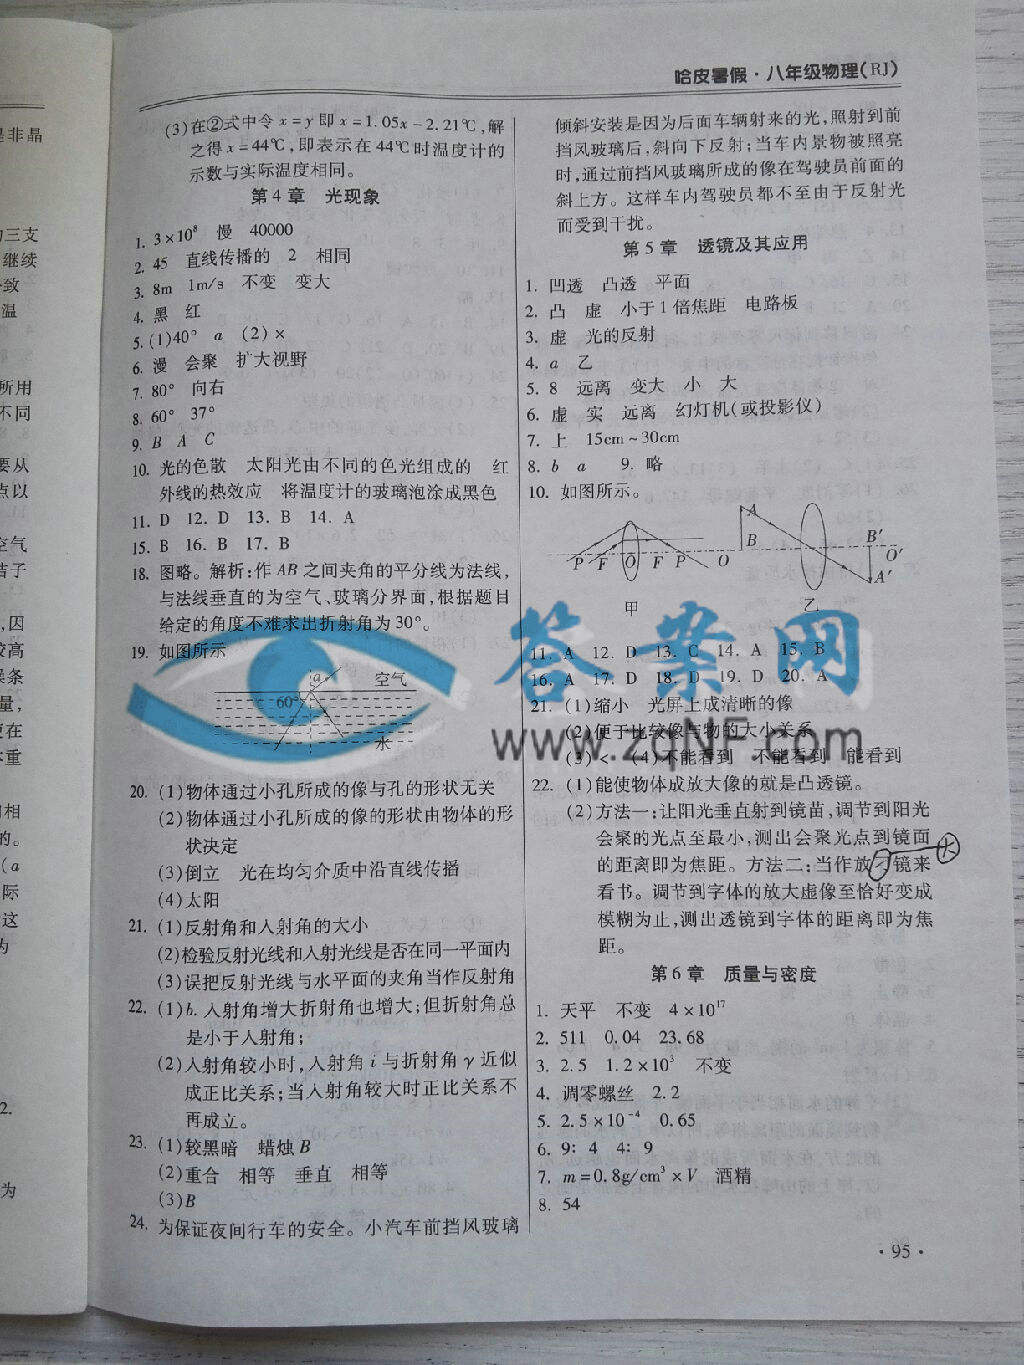 哈皮暑假·八年级物理(RJ)
(3)在②式中令 x=y 即 x=1.05x-2.21℃,解
之得 x=44℃,即表示在44℃时温度计的
示数与实际温度相同。
第4章 光现象
1. 3×10⁸ 慢 40000
2. 45 直线传播的 2 相同
3. 8m 1m/s 不变 变大
4. 黑 红
5. (1)40° a (2)×
6. 漫 会聚 扩大视野
7. 80° 向右
8. 60° 37°
9. B A C
10. 光的色散 太阳光由不同的色光组成的 红
外线的热效应 将温度计的玻璃泡涂成黑色
11. D 12. D 13. B 14. A
15. B 16. B 17. B
18. 图略。解析:作AB之间夹角的平分线为法线,
与法线垂直的为空气、玻璃分界面,根据题目
给定的角度不难求出折射角为30°。
19. 如图所示
a 空气
60°
水
20. (1)物体通过小孔所成的像与孔的形状无关
(2)物体通过小孔所成的像的形状由物体的形
状决定
(3)倒立 光在均匀介质中沿直线传播
(4)太阳
21. (1)反射角和入射角的大小
(2)检验反射光线和入射光线是否在同一平面内
(3)误把反射光线与水平面的夹角当作反射角
22. (1)b.入射角增大折射角也增大;但折射角总
是小于入射角;
(2)入射角较小时,入射角 i 与折射角 γ 近似
成正比关系;当入射角较大时正比关系不
再成立。
23. (1)较黑暗 蜡烛B
(2)重合 相等 垂直 相等
(3)B
24. 为保证夜间行车的安全。小汽车前挡风玻璃
倾斜安装是因为后面车辆射来的光,照射到前
挡风玻璃后,斜向下反射;当车内景物被照亮
时,通过前挡风玻璃所成的像在驾驶员前面的
斜上方。这样车内驾驶员都不至由于反射光
而受到干扰。
第5章 透镜及其应用
1. 凹透 凸透 平面
2. 凸 虚 小于1倍焦距 电路板
3. 虚 光的反射
4. a 乙
5. 8 远离 变大 小 大
6. 虚 实 远离 幻灯机(或投影仪)
7. 上 15cm~30cm
8. b a 9. 略
10. 如图所示。
P F O F P O A B B′ O′ A′
甲 乙
11. A 12. D 13. C 14. A 15. B
16. A 17. D 18. D 19. D 20. A
21. (1)缩小 光屏上成清晰的像
(2)便于比较像与物的大小关系
(3)< (4)不能看到 不能看到 能看到
22. (1)能使物体成放大像的就是凸透镜。
(2)方法一:让阳光垂直射到镜苗,调节到阳光
会聚的光点至最小,测出会聚光点到镜面
的距离即为焦距。方法二:当作放 镜来 大
看书。调节到字体的放大虚像至恰好变成
模糊为止,测出透镜到字体的距离即为焦
距。
第6章 质量与密度
1. 天平 不变 4×10¹⁷
2. 511 0.04 23.68
3. 2.5 1.2×10³ 不变
4. 调零螺丝 2.2
5. 2.5×10⁻⁴ 0.65
6. 9:4 4:9
7. m=0.8g/cm³×V 酒精
8. 54
·95·
答案网
www.zqNF.com